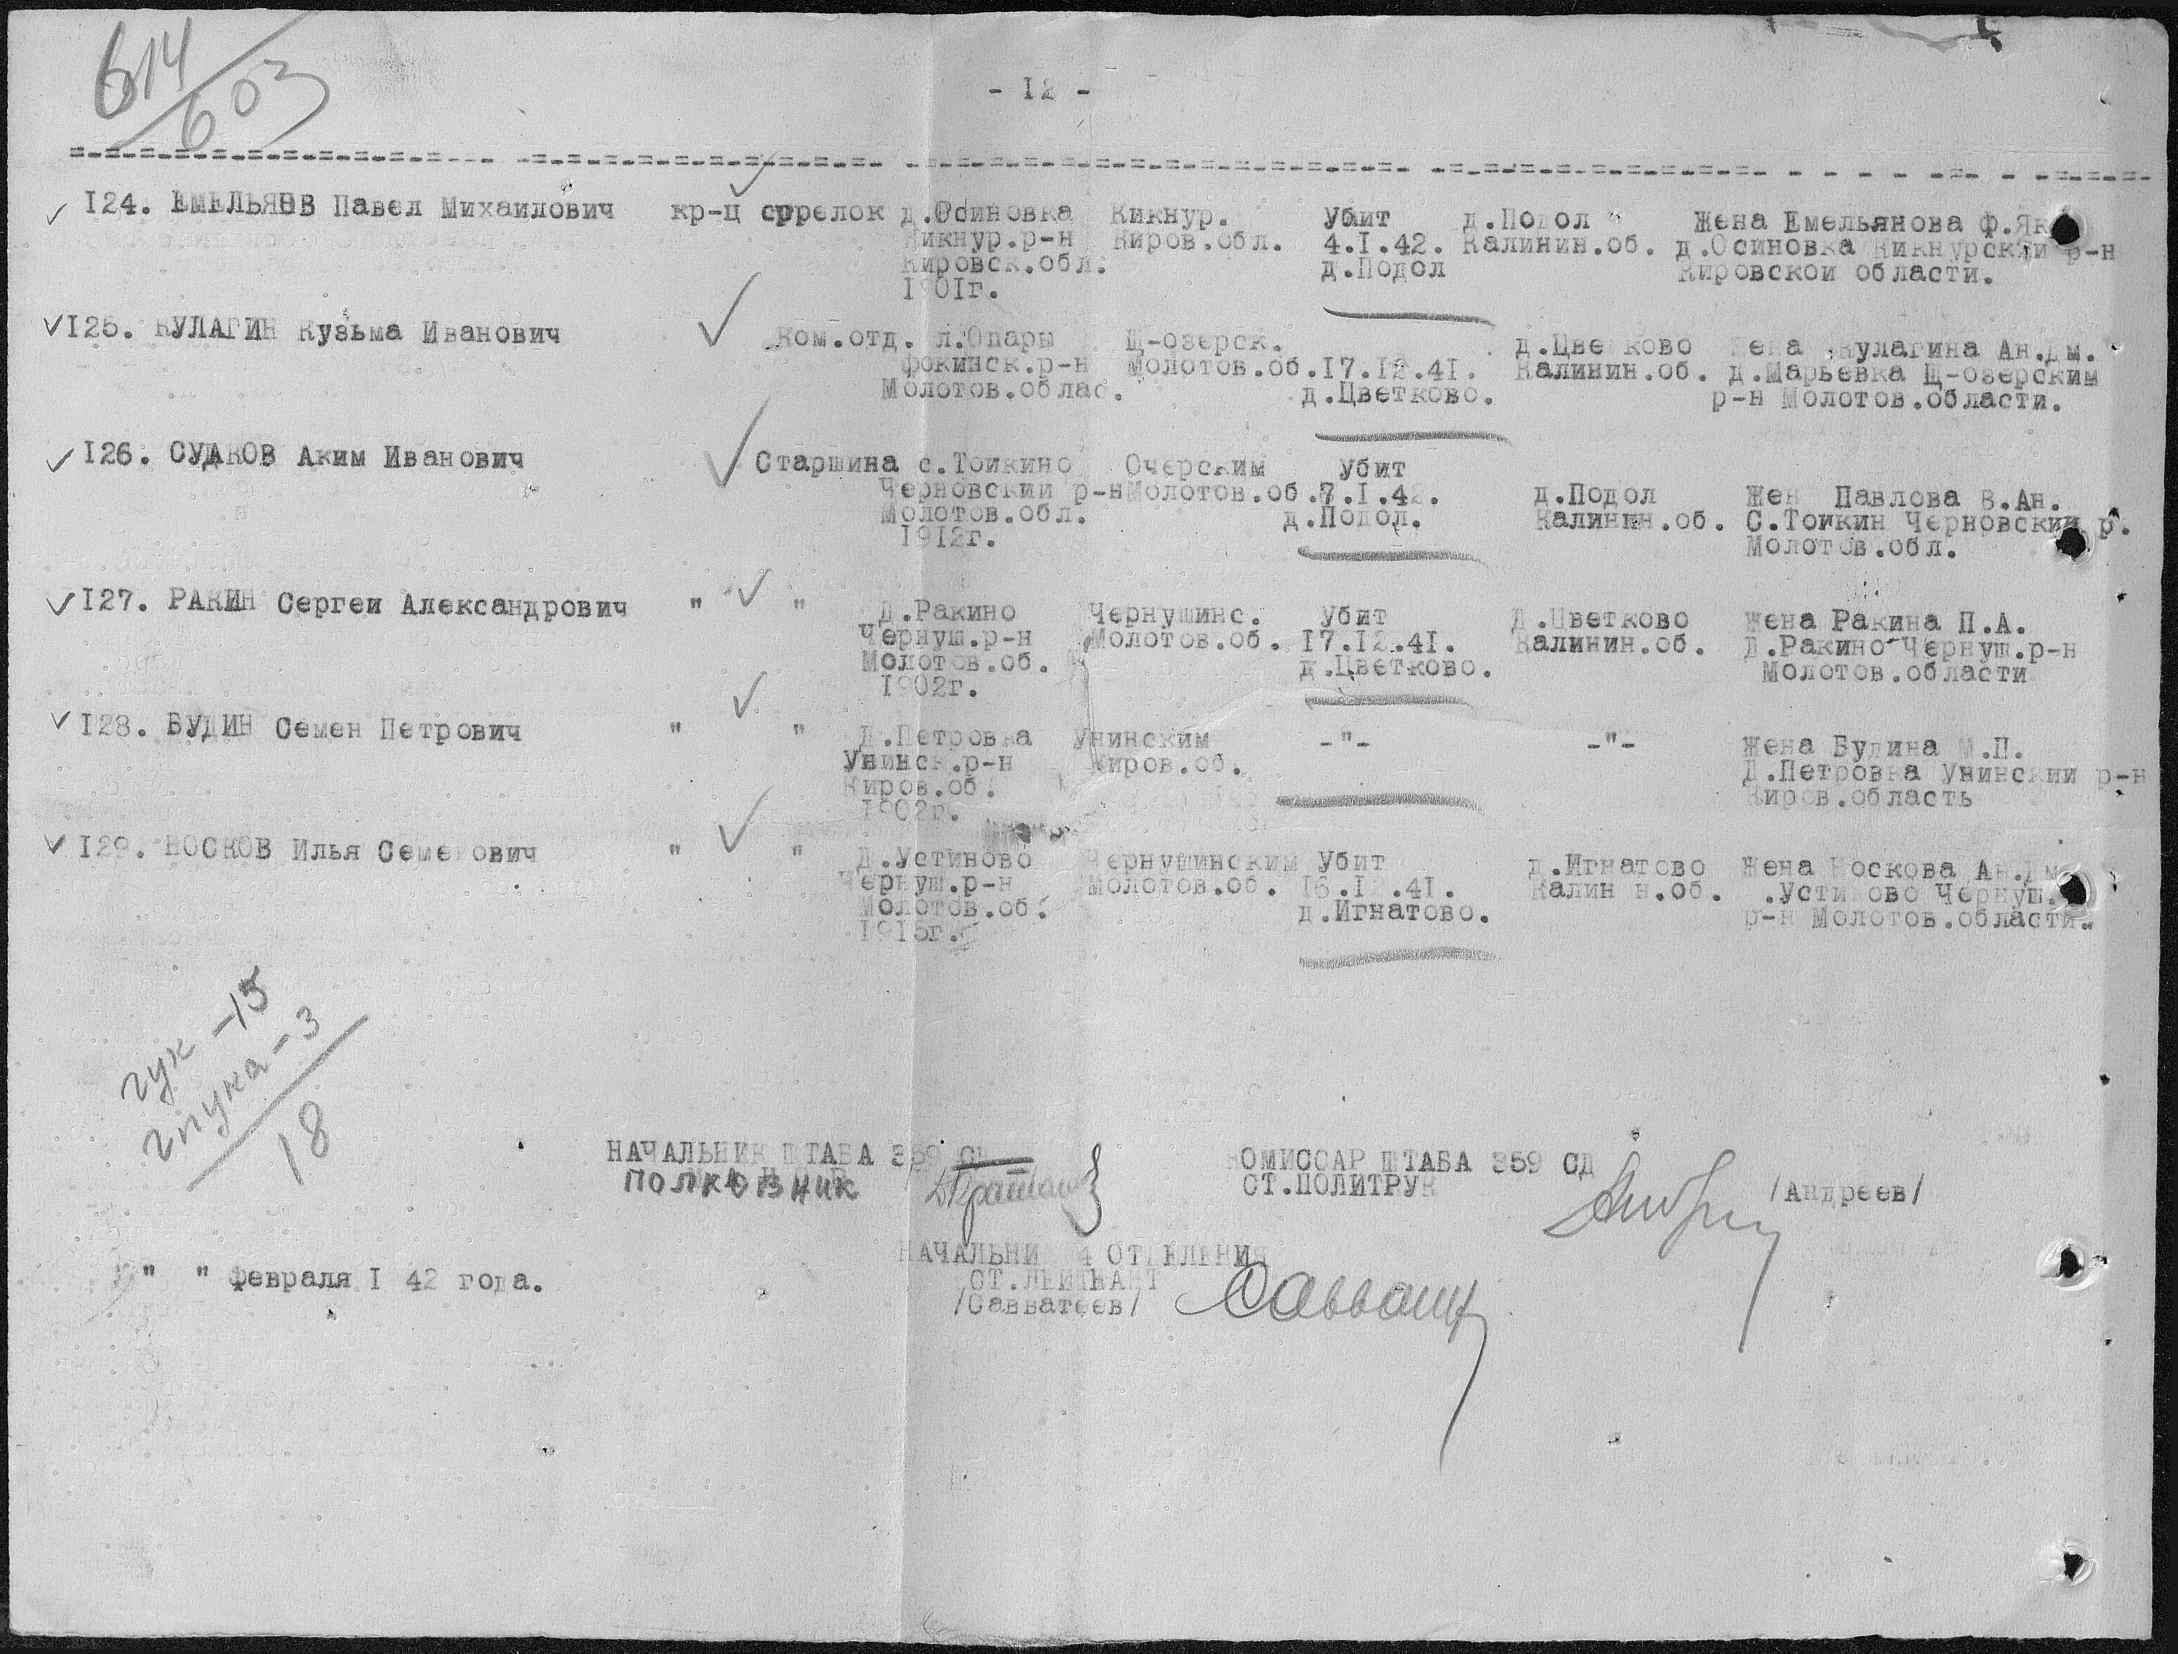 614
603
- I2 -
I24. ЕМЕЛЬЯНОВ Павел Михаилович кр-ц стрелок д.Осиновка Кикнур. Убит д.Подол Жена Емельянова Ф.Як
Кикнур.р-н Киров.обл. 4.I.42. Калинин.об. д.Осиновка Кикнурский р-н
Кировск.обл. д.Подол Кировской области.
I901г.
I25. КУЛАГИН Кузьма Иванович Ком.отд. л.Опары Щ-озерск. д.Цветково Жена Кулагина Ан.Дм.
Фокинск.р-н Молотов.об. I7.I2.4I. Калинин.об. д.Марьевка Щ-озерским
Молотов.облас. д.Цветково. р-н Молотов.области.
I26. СУДАКОВ Аким Иванович Старшина с.Тоикино Очерским Убит
Черновский р-н Молотов.об. 7.I.42. д.Подол Жен Павлова В.Ан.
Молотов.обл. д.Подол. Калинин.об. С.Тоикин Черновский р.
I912г. Молотов.обл.
I27. РАКИН Сергеи Александрович " " Д.Ракино Чернушинс. Убит Д.Цветково Жена Ракина П.А.
Чернуш.р-н Молотов.об. I7.I2.4I. Калинин.об. Д.Ракино Чернуш.р-н
Молотов.об. д.Цветково. Молотов.области
I902г.
I28. БУДИН Семен Петрович " " Д.Петровка Унинским -"- -"- Жена Будина М.П.
Унинск.р-н Киров.об. Д.Петровка Унинский р-н
Киров.об. Киров.область
I902г.
I29. НОСКОВ Илья Семенович " " Д.Устиново Чернушинским Убит д.Игнатово Жена Носкова Ан.Дм
Чернуш.р-н Молотов.об. I6.I2.4I. Калинин.об. .Устиново Чернуш.
Молотов.об. д.Игнатово. р-н Молотов.области.
I915г.
гук -15
гпука -3
18
НАЧАЛЬНИК ШТАБА 359 СД КОМИССАР ШТАБА 359 СД
ПОЛКОВНИК СТ.ПОЛИТРУК /Андреев/
НАЧАЛЬНИК 4 ОТДЕЛЕНИЯ
" " февраля I 42 года. СТ.ЛЕЙТЕНАНТ
/Савватеев/